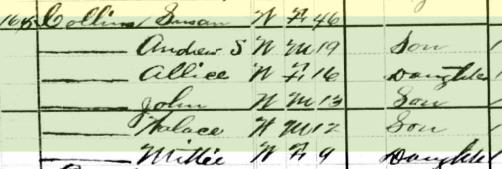 Collins Susan W F 46
Andrew S W M 19 Son
Allice W F 16 Daughter
John W M 13 Son
Walace W M 12 Son
Mittie W F 9 Daughter